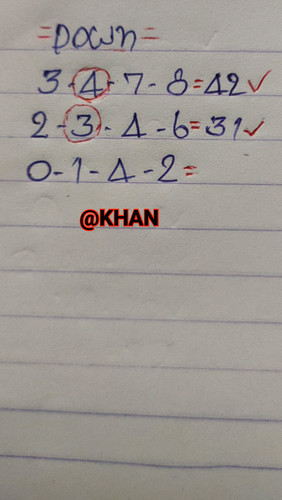 =Down=
3-4-7-8=42✓
2-3-4-6=31✓
0-1-4-2=
@KHAN